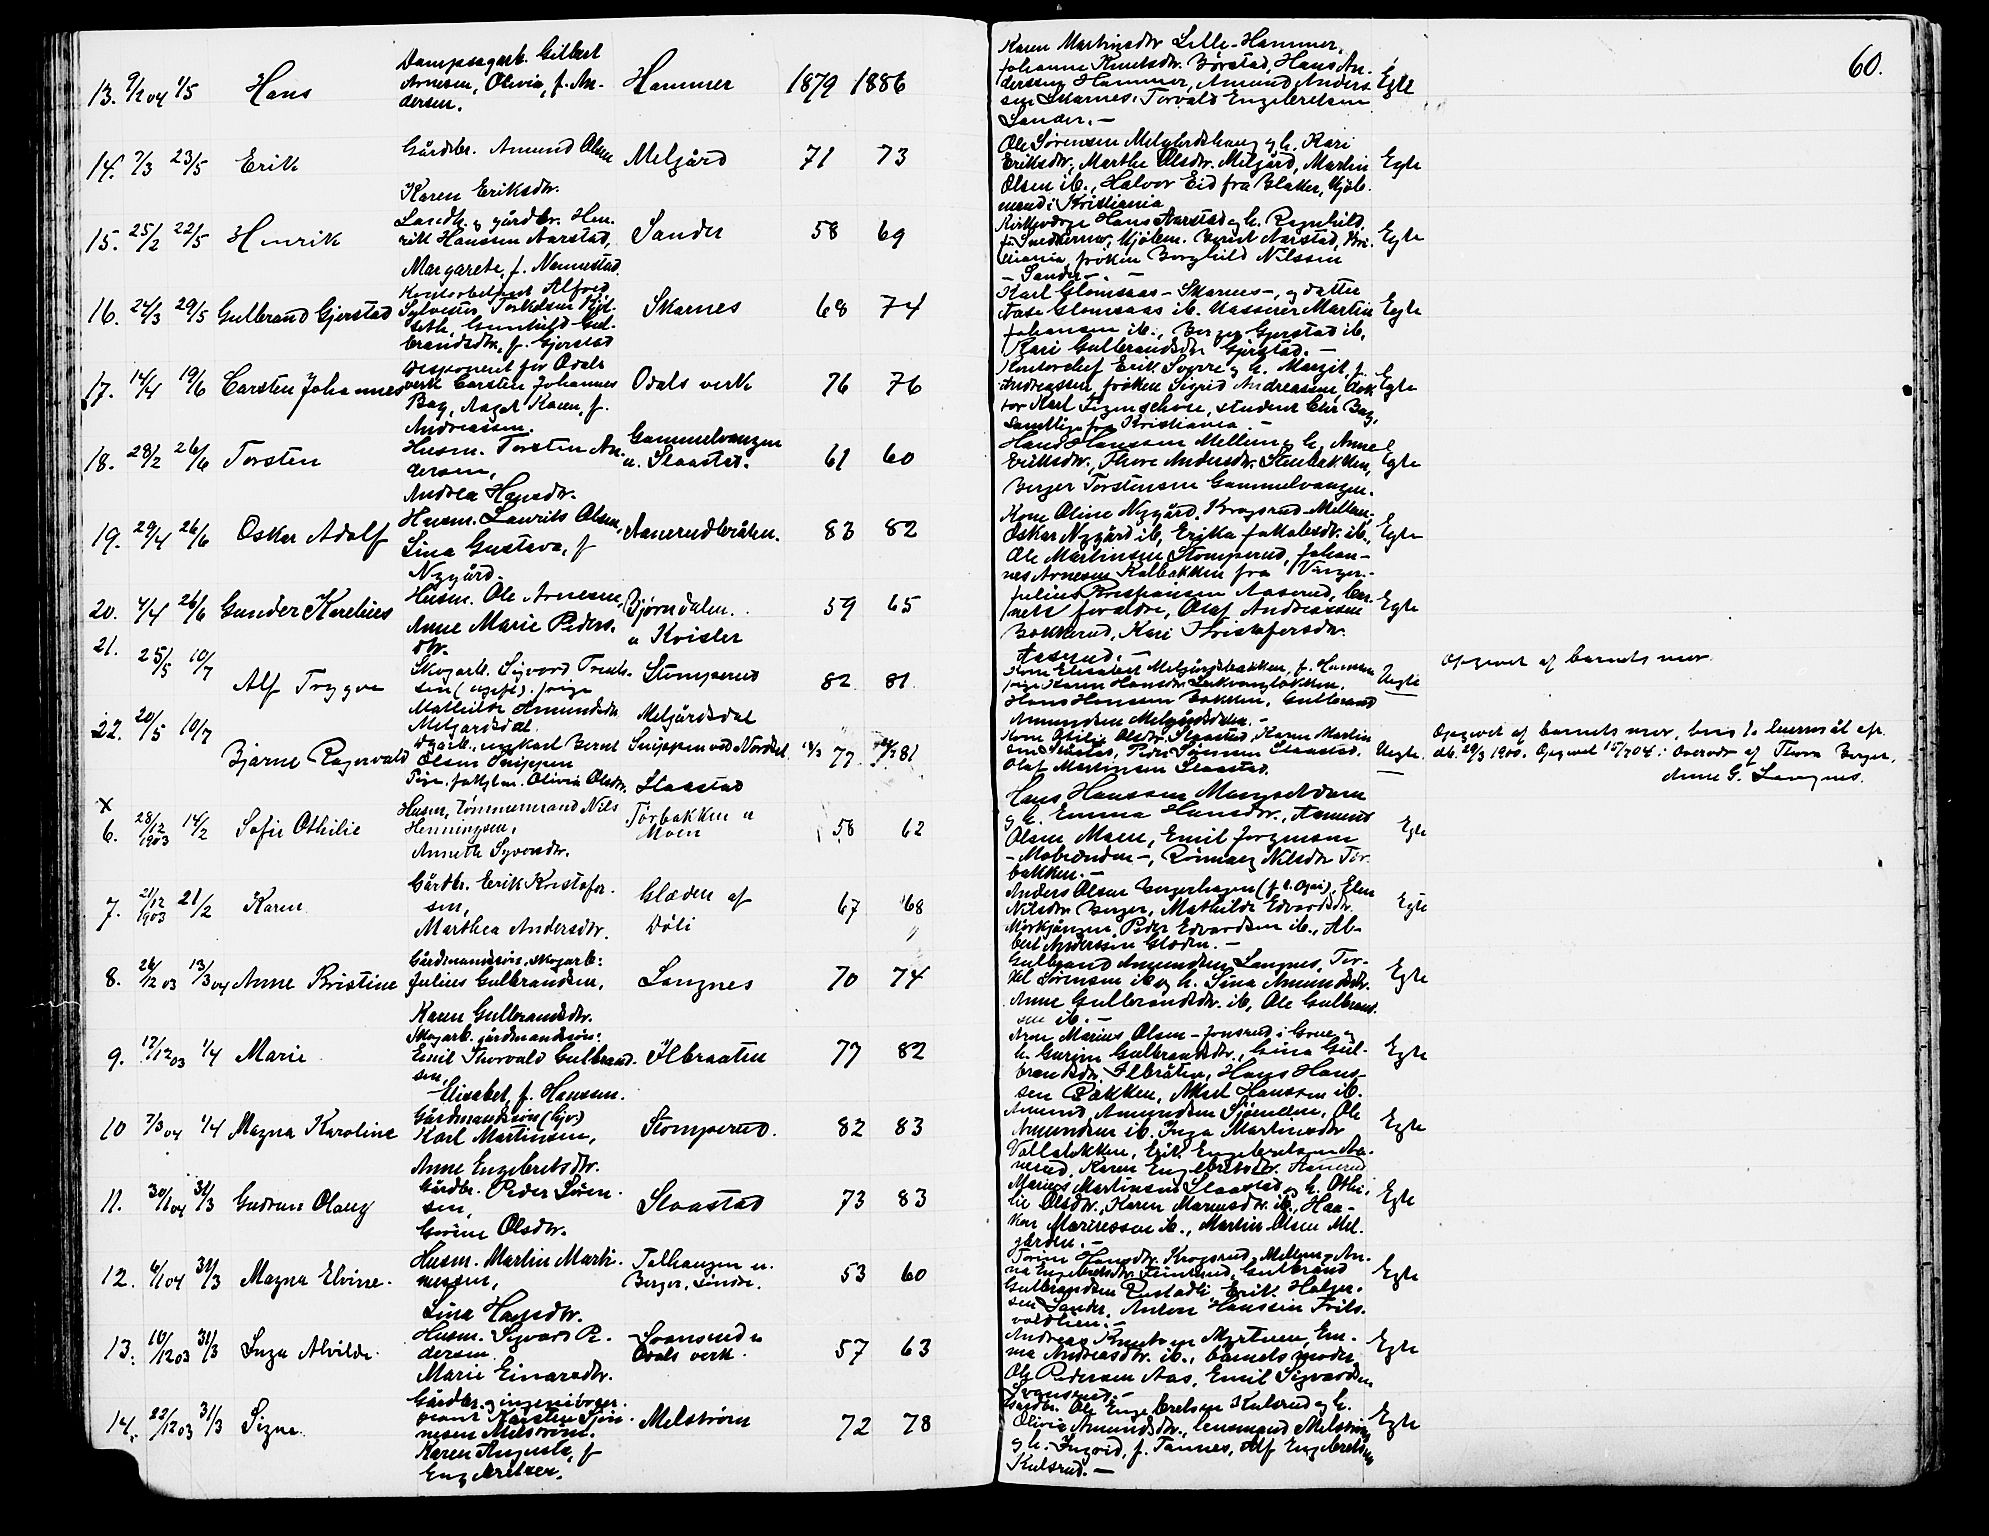 60.
13. 9/2 04 1/5 Hans
Dampsagarb. Gilbert
Arnesen, Olivia, f. An-
dersen.
Hammer 1879 1886
Karen Martinsdtr Lille-Hammer,
Johanne Knutsdtr. Børstad, Hans An-
dersen Hammer, Amund Anders
sen Skarnes, Torvald Engebretsen
Sander. —
Egte
14. 7/3 23/5 Erik
Gårdbr. Amund Olsen
Karen Eriksdtr.
Melgård 71 73
Ole Sørensen og h. Kari
Eriksdtr., Marthe Olsdtr. Melgård, Martin
Olsen ib., Halvor Eid fra Blaker, Kjøb-
mand i Kristiania
Egte
15. 25/2 22/5 Henrik
Landh. og gårdbr. Hen-
rik Hanssen Aarstad,
Margarete, f. Nannestad.
Sander 58 69
Kirkeværge Hans Aarstad og h. Ragnhild,
Kjøbm. Bernt Aarstad, Kri-
stiania, frøken Borghild Nilssen
— Sander —. —
Egte
16. 24/3 29/5 Gulbrand Gjerstad
Kontorbetjent Alfred
Sylvester Torkelsen
Gunhild Gul-
brandsdtr., f. Gjerstad
Skarnes 68 74
Karl Glomsaas — Skarnes —, og datter
Aase Glomsaas ib. Kasserer Martin
Johansen ib., Berger Gjerstad ib.,
Kari Gulbrandsdtr Gjerstad. —
Egte
17. 14/4 19/6 Carsten Johannes
Disponent for Odals
verk Carsten Johannes
Bag, Aagot Karen, f.
Andreassen.
Odals verk 76 76
Kontorchef Erik og h. Margit, f.
Andreassen, frøken Sigrid Andreassen, Dok
tor Karl student Chr Bag,
samtlige fra Kristiania. —
Egte
18. 28/2 26/6 Torsten
Husm. Torsten An-
dersen,
Andrea Hansdtr.
Gammelvangen
u. Slaastad. 61 60
Hans Hanssen Mellem og h. Anne
Eriksdtr., Thore Andersdtr. Stenbakken,
Berger Torstensen Gammelvangen.
Egte
19. 29/4 26/6 Oskar Adolf
Husm. Laurits Olsen,
Lina Gustava, f
Nygård.
Aanerudbråten. 83 82
Kone Oline Nygård, Krogsrud-Mellem,
Oskar Nygård ib, Erikka Jakobsdtr. ib.,
Ole Martinsen Stomperud, Johan-
nes Arnesen Kolbakken fra Vinger.
Egte
20. 4/4 26/6 Gunder Kornelius
Husm. Ole Arnesen,
Anne Marie Peders-
dtr.
Bjørndalen
u Kvisler 59 65
Julius Kristiansen Aaserud, bar-
nets forældre, Olaf Andreassen
Bakkerud, Kari Kristofersdtr.
Aaserud. —
Egte
21. 25/5 10/7 Alf Trygve
Skogarb. Sigvard Fredk-
sen (ugift). Pige
Mathilde Amundsdtr
Melgårdsdal.
Stomperud
Melgårdsdal 82 81
Kone Elisabet Melgårdsbakken, f. Hansen
pige Karen Hansdtr.
Hans Hansen Bakken, Gulbrand
Amundsen Melgårdsdalen. —
Uegte
Opgivet af barnets mor.
22. 20/5 10/7 Bjarne Ragnvald
Dgarb., unkarl Bernt
Olsen Snippen
Pige, Olivia Olsdtr.
Snippen ved Nordset
Slaastad 77 81
Kone Othilie Olsdtr. Slaastad, Karen Martin
sen Slaastad, Peder Sørensen Slaastad.
Olaf Martinsen Slaastad.
Uegte.
Opgivet af barnets mor, hens to leiermål efr.
db. 29/3 1900. Opgivet 15/7 04: Overodr af Thora Berger,
Anne G. Langnes.
x
6. 28/12 1903 14/2 Sofie Othilie
Husm, Tømmermand Nils
Henningsen,
Annette Syversdtr.
Torbakken u
Moen 58 62
Hans Hanssen
og h. Emma Hansdtr.,
Olsen Moen, Emil Jørgensen
— Mobrænden —, Rønnaug Nilsdtr Tor-
bakken. —
Egte
7. 21/12 1903 21/2 Karen
Gårdbr. Erik Kristofer-
sen,
Marthea Andersdtr.
Glæden af
Døli 67 68
Anders Olsen Bergerhagen Elen
Nilsdtr Berger, Mathilde Edvardsdtr.
Mørkjången, Peder Edvardsen ib., Al-
bert Anderssen Glæden. —
Egte
8. 26/12 03 13/3 04 Anne Kristine
Gårdmandssøn, skogarb:
Julius Gulbrandsen,
Karen Gulbrandsdtr.
Langnes 70 74
Gulbrand Amundsen Langnes, Tor-
kel Sørensen ib og h. Lina Amundsdtr.
Anne Gulbrandsdtr. ib, Ole Gulbrand-
sen ib. —
Egte
9. 12/12 03 1/4 Marie
Skogarb. gårdmandssøn:
Emil Thorvald Gulbrand-
sen,
Elisabet, f. Hansen.
Ilbraaten 77 82
Arne Marius Olsen — Jonsrud i Grue, og
h. Gurine Gulbrandsdtr., Gina Gul-
brandsdtr. Ilbråten, Hans Hans-
sen Bakken, Mart Hanssen ib.
Egte
10 7/3 04 1/4 Magna Karoline
Gårdmandssøn
Karl Martinsen,
Anne Engebretsdtr.
Stomperud. 82 83
Amund Amundsen Sjøenden, Ole
Amundsen ib. Inga Martinsdtr
Volleløkken, Erik Engebretsen Aa-
nerud, Karen Engebretsdtr. Aanerud
Egte
11. 30/1 04 31/3 Gudrun Olaug
Gårdbr. Peder Søren-
sen,
Gurine Olsdtr.
Slaastad 73 83
Marius Martinsen Slaastad og h. Othi-
lie Olsdtr., Karen Mariusdtr. ib., Haa-
kon Mariussen ib., Martin Olsen Mel-
gården. —
Egte
12. 6/1 04 31/3 Magna Elvine.
Husm. Martin Marti-
nussen,
Lina Hansdtr.
Talhaugen u.
Berger, Søndre. 53 60
Torine Hansdtr. Krogsrud, Mellem, An-
na Engebretsdtr. Gulbrand
Gulbrandsen Rustadli, Erik Holger-
sen Sander, Anton Hanssen Frits-
voldlien. —
Egte
13. 16/12 03 31/3 Inga Alvilde.
Husm. Sigvart P.
dersen
Marie Einarsdtr.
Svansrud u
Odals verk. 57 63
Andreas Knutsen Myrtuen, Em-
ma Andreasdtr. ib., barnets moder,
Ole Pedersen Aas, Emil Sigvardsen
Svansrud. —
Egte
14. 22/12 03 31/3 Signe.
Gårdbr. og
Karsten Sjøn-
nesen Melstrøm.
Karen Augusta, f
Engebretsen.
Melstrøm 72 78
Gårdbr. Ole Engebretsen Kulsrud og h.
Olivia Amundsdtr., lensmand Melstrøm
og h. Ingvid, f. Tannes, Alf Engebretsen
Kulsrud. —
Egte